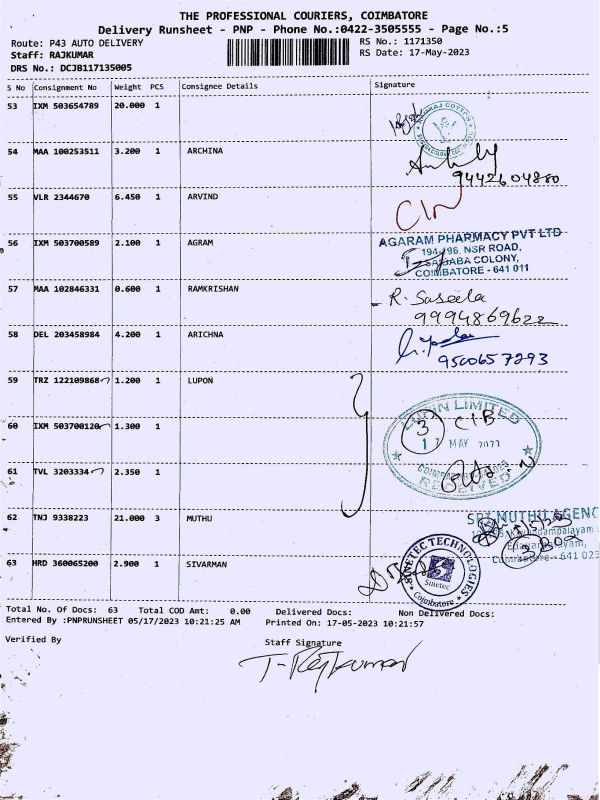 THE PROFESSIONAL COURIERS, COIMBATORE
Delivery Runsheet - PNP - Phone No.:0422-3505555 - Page No.:5
Route: P43 AUTO DELIVERY
RS No.: 1171350
Staff: RAJKUMAR
RS Date: 17-May-2023
DRS No.: DCJB117135005
S No Consignment No Weight PCS Consignee Details Signature
53 IXM 503654789 20.000 1
COTTON
54 MAA 100253511 3.200 1 ARCHINA
9442604880
55 VLR 2344670 6.450 1 ARVIND
56 IXM 503700589 2.100 1 AGRAM
AGARAM PHARMACY PVT LTD
194-196, NSR ROAD,
SAIBABA COLONY,
COIMBATORE - 641 011
57 MAA 102846331 0.600 1 RAMKRISHAN
R. Saseela
9994869622
58 DEL 203458984 4.200 1 ARICHNA
9500657293
59 TRZ 122109868 1.200 1 LUPON
LUPIN LIMITED
60 IXM 503700120 1.300 1
3 CIB
17 MAY 2023
61 TVL 3203334 2.350 1
RECEIVED
62 TNJ 9338223 21.000 3 MUTHU
SRI MUTHU AGENC
3 Box
Coimbatore - 641 023
63 HRD 360065200 2.900 1 SIVARMAN
SINETEC TECHNOLOGIES
Sinetec
Coimbatore
Total No. Of Docs: 63 Total COD Amt: 0.00 Delivered Docs: Non Delivered Docs:
Entered By :PNPRUNSHEET 05/17/2023 10:21:25 AM Printed On: 17-05-2023 10:21:57
Verified By Staff Signature
T-Rajkumar